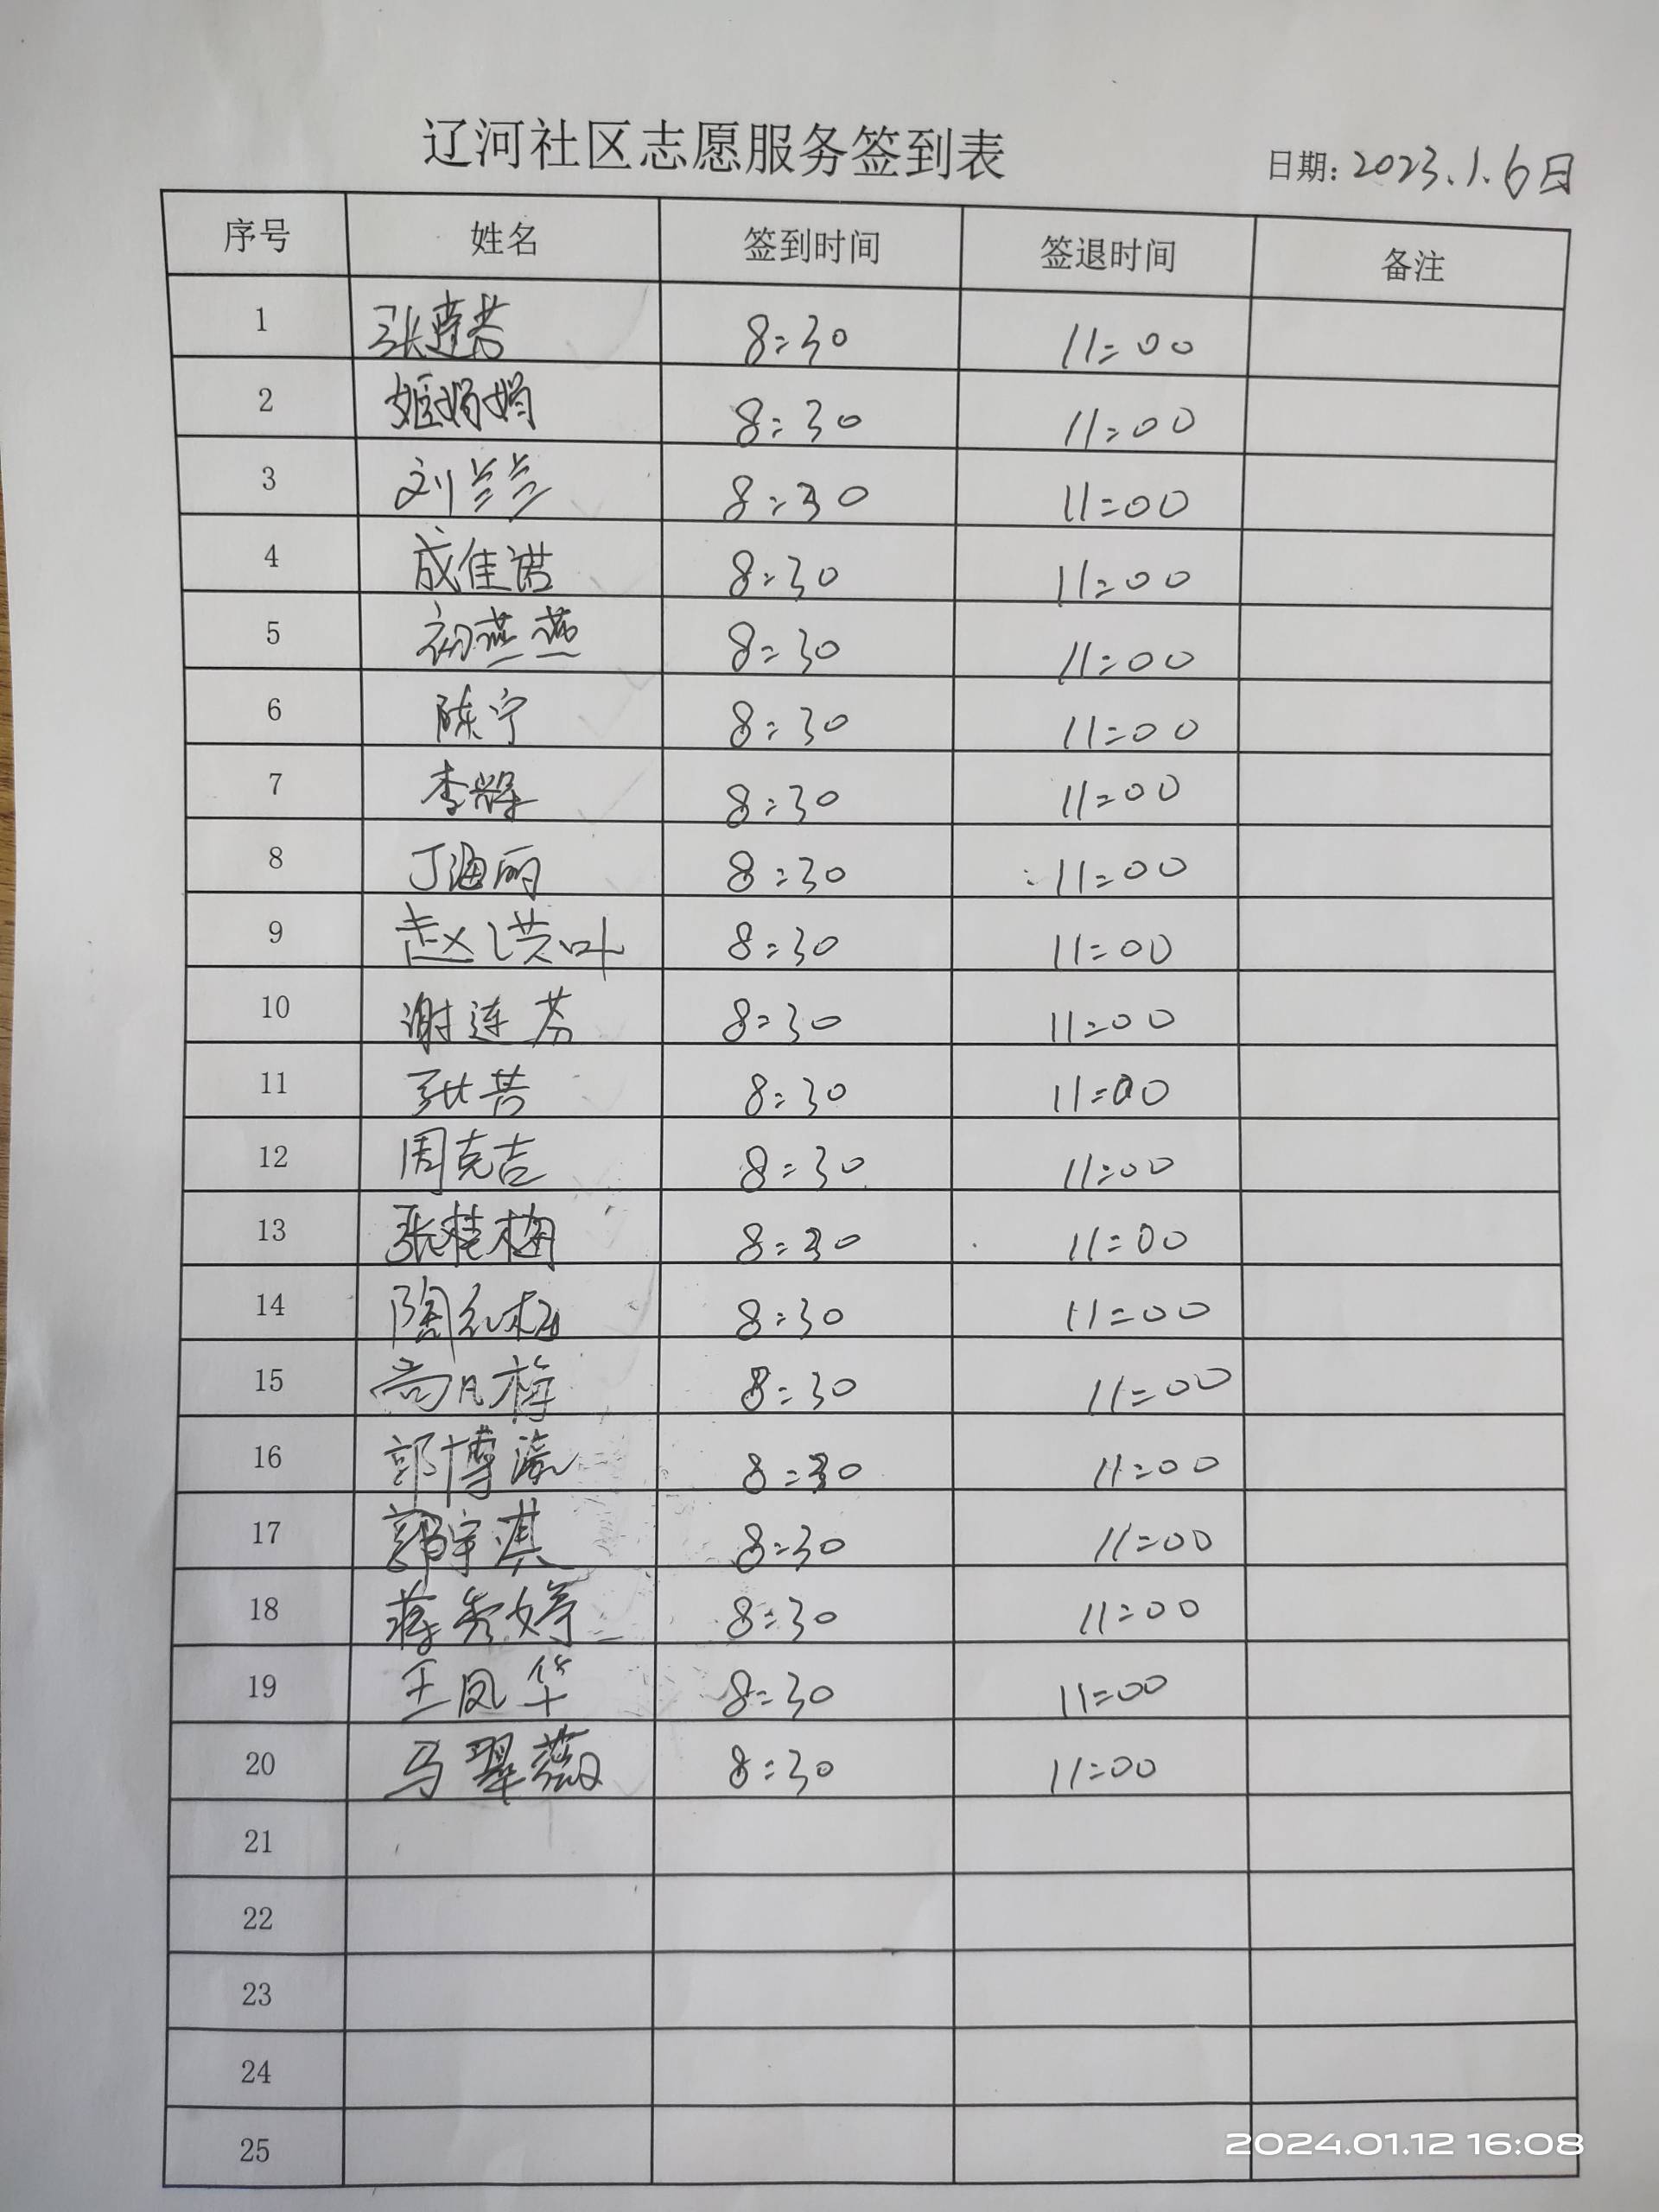 辽河社区志愿服务签到表
日期: 2023.1.6日
序号 姓名 签到时间 签退时间 备注
1 张莲芳 8:30 11:00
2 姬娟娟 8:30 11:00
3 刘兰兰 8:30 11:00
4 成佳诺 8:30 11:00
5 初燕燕 8:30 11:00
6 陈宁 8:30 11:00
7 李翠 8:30 11:00
8 丁海丽 8:30 11:00
9 赵洪叶 8:30 11:00
10 谢连芬 8:30 11:00
11 张芳 8:30 11:00
12 周克吉 8:30 11:00
13 张桂梅 8:30 11:00
14 陶红梅 8:30 11:00
15 尚凡梅 8:30 11:00
16 郭博瀛 8:30 11:00
17 郭宇淇 8:30 11:00
18 蒋秀婷 8:30 11:00
19 王凤华 8:30 11:00
20 马翠薇 8:30 11:00
21
22
23
24
25
2024.01.12 16:08